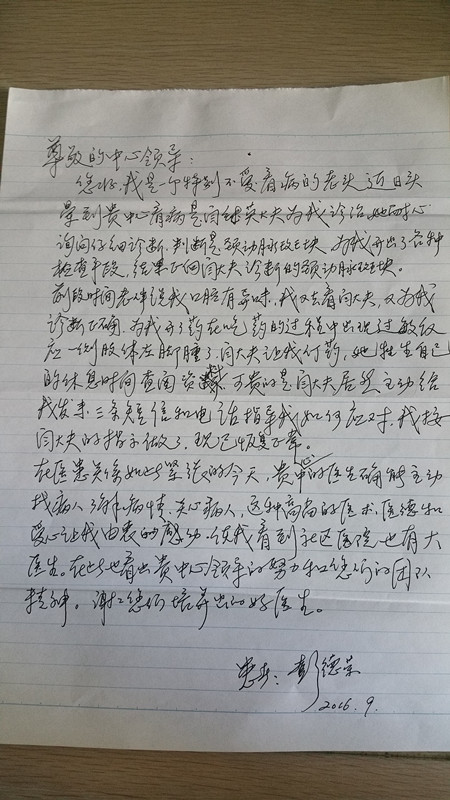 尊敬的中心领导：
您好，我是一个特别不爱看病的老头近日头
晕到贵中心看病是闫大夫为我诊治她耐心
询问仔细诊断，判断是颈动脉斑块，为我开出了各种
检查手段，结果正同闫大夫诊断的颈动脉斑块。
前段时间老伴说我口腔有异味，我又去看闫大夫，又为我
诊断正确，为我开了药在吃药的过程中出现过敏反
应一侧肢体左脚肿了，闫大夫让我停药，她牺牲自己
的休息时间查阅资料，可贵的是闫大夫居然主动给
我发来三条短信和电话指导我如何应对，我按
闫大夫的指示做了，现已恢复正常。
在医患关系如此紧张的今天，贵中心的医生确能主动
找病人了解病情、关心病人，这种高尚的医术、医德和
爱心让我由衷的感动，使我看到社区医院也有大
医生。在此也看出贵中心领导的努力和您们的团队
精神，谢谢您们培养出的好医生。
患者：彭德荣
2016.9.